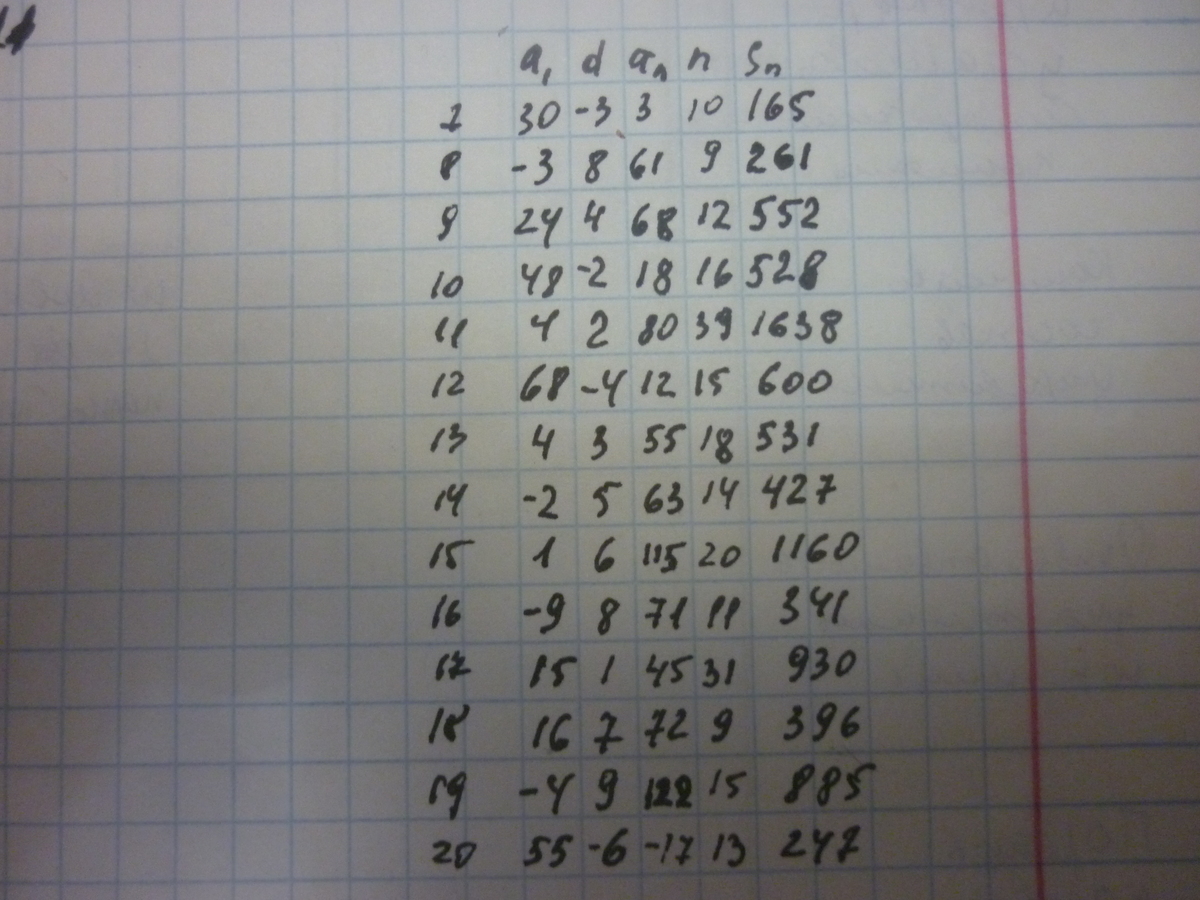 a₁ d aₙ n Sₙ
7 30 -3 3 10 165
8 -3 8 61 9 261
9 24 4 68 12 552
10 48 -2 18 16 528
11 4 2 80 39 1638
12 68 -4 12 15 600
13 4 3 55 18 531
14 -2 5 63 14 427
15 1 6 115 20 1160
16 -9 8 71 11 341
17 15 1 45 31 930
18 16 7 72 9 396
19 -4 9 122 15 885
20 55 -6 -17 13 247